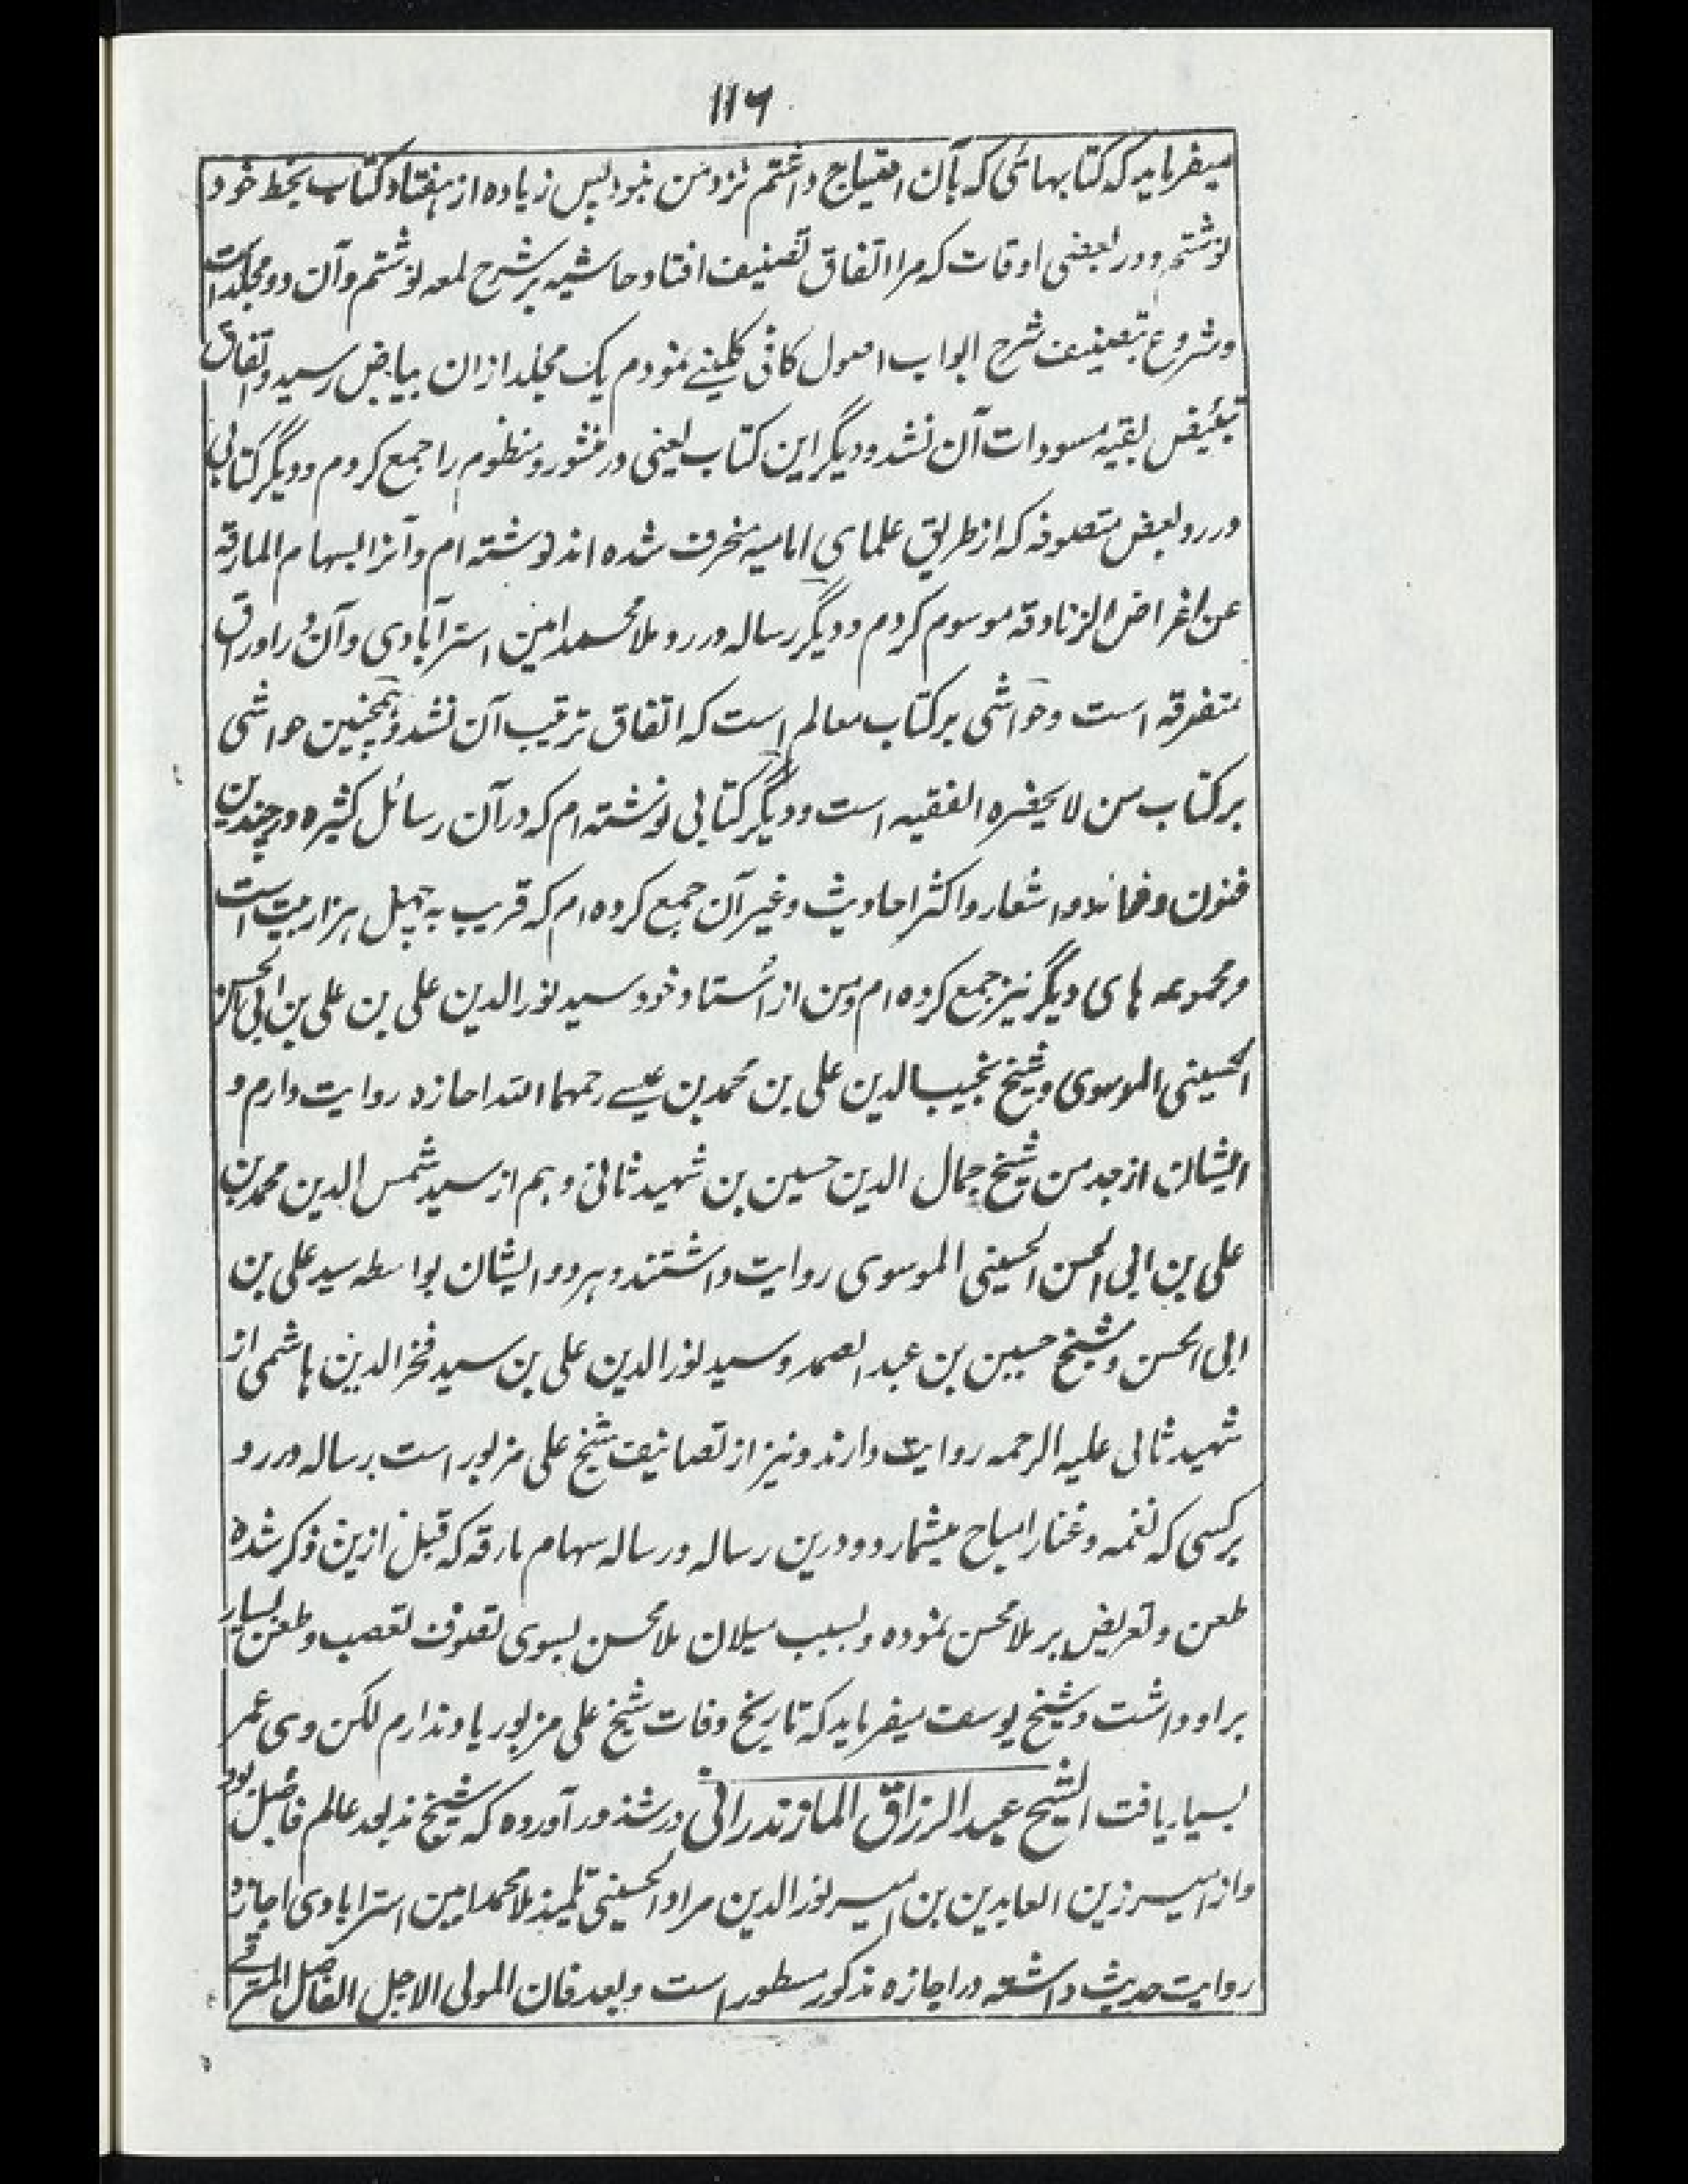 ۱۱۶
میفرماید که کتابهائی که بآن احتیاج داشتم نزد من نبود پس زیاده از هفتاد کتاب بخط خود
نوشتم و در بعضی اوقات که مرا اتفاق تصنیف افتاد حاشیه بر شرح لمعه نوشتم و آن دو مجلد است
و شروع بتصنیف شرح ابواب اصول کافی کلینی نمودم یک مجلد از ان بیاض رسید و اتفاق
تبئیض بقیه مسودات آن نشد و دیگر این کتاب یعنی در منثور و منظوم را جمع کردم و دیگر کتابی
در رد بعض متصوفه که از طریق علمای امامیه منحرف شده اند نوشته ام و آنرا بسهام المارقه
عن اغراض الزنادقه موسوم کردم و دیگر رساله در رد ملا محمد امین استرآبادی و آن در اوراق
متفرقه است و حواشی بر کتاب معالم است که اتفاق ترتیب آن نشد و همچنین حواشی
بر کتاب من لا یحضره الفقیه است و دیگر کتابی نوشته ام که در آن رسائل کثیره در چندین
فنون و اشعار و اکثر احادیث و غیر آن جمع کرده ام که قریب به چهل هزار بیت است
و مجموعه های دیگر نیز جمع کرده ام و من از اُستاد خود سید نورالدین علی بن علی بن ابی الحسن
الحسینی الموسوی و شیخ نجیب الدین علی بن محمد بن عیسے رحمهما الله اجازه روایت دارم و
ایشان از جد من شیخ جمال الدین حسین بن شهید ثانی و هم از سید شمس الدین محمد بن
علی بن ابی الحسن الحسینی الموسوی روایت داشتند و هر دو ایشان بواسطه سید علی بن
ابی الحسن و شیخ حسین بن عبد الصمد و سید نورالدین علی بن سید فخرالدین هاشمی از
شهید ثانی علیه الرحمه روایت دارند و نیز از تصانیف شیخ علی مزبور است رساله در رد
بر کسی که نغمه و غنا را مباح میشمارد و درین رساله و رساله سهام مارقه که قبل ازین ذکر شده
طعن و تعریض بر ملا محسن نموده و بسبب میلان ملا محسن بسوی تصوف تعصب و طعن بسیار
بر او داشت و شیخ یوسف میفرماید که تاریخ وفات شیخ علی مزبور یاد ندارم لکن وی عمر
بسیار یافت الشیخ عبد الرزاق المازندرانی در شذور آورده که شیخ مذبور عالم فاضل بود
و از امیر زین العابدین بن امیر نورالدین مراد الحسینی تلمیذ ملا محمد امین استرابادی اجازه
روایت حدیث داشته در اجازه مذکور مسطور است و بعد فان المولی الاجل الفاضل المترقے